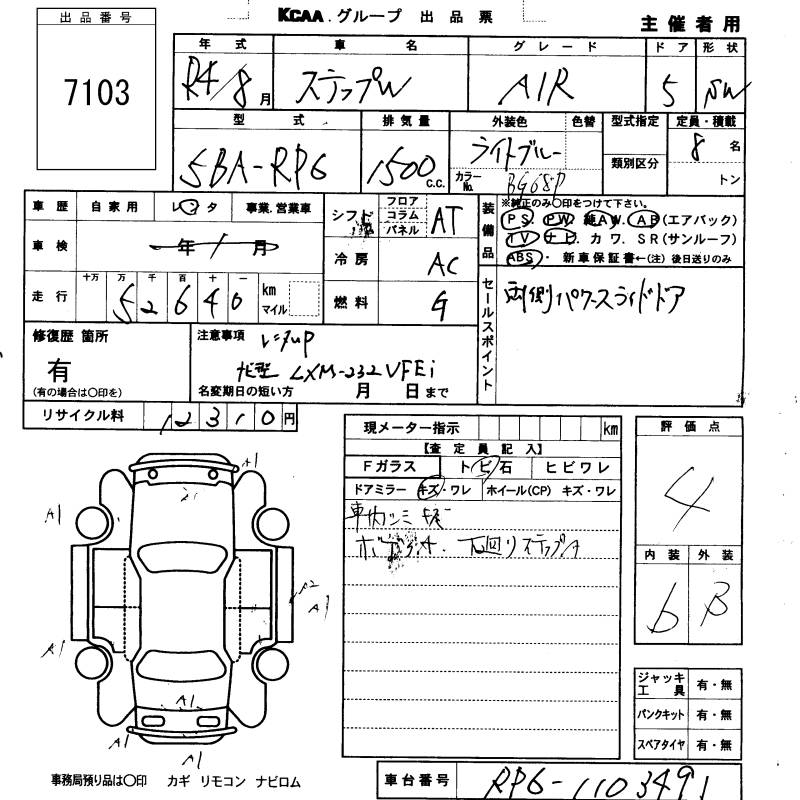 KCAA.グループ 出品票
主催者用
出品番号
7103
年式 車名 グレード ドア 形状
R4/8月 ステップW AIR 5 SW
型式 排気量 外装色 色替 型式指定 定員・積載
5BA-RP6 1500 C.C. ライトブルー 類別区分 8名
カラーNo. BG68P トン
車歴 自家用 レンタ 事業.営業車
シフト フロア コラム パネル AT
装備品
※純正のみ○印をつけて下さい。
PS. PW. 純AW. AB(エアバック)
TV ナビ. カワ. SR(サンルーフ)
ABS・ 新車保証書←(注)後日送りのみ
車検 年 / 月
冷房 AC
走行 十万 万 千 百 十 一 km マイル
52640
燃料 G
セールスポイント
両側パワースライドドア
修復歴 箇所
有
(有の場合は○印を)
注意事項 レンタup
ナビ型 LXM-232VFEi
名変期日の短い方 月 日まで
リサイクル料 12310円
現メーター指示 km
【査定員記入】
Fガラス トビ石 ヒビワレ
ドアミラー キズ・ワレ ホイール(CP) キズ・ワレ
車内シミ キズ
下回りステップA
評価点
4
内装 外装
b B
ジャッキ工具 有・無
パンクキット 有・無
スペアタイヤ 有・無
A1
A1
A2
A1
A1
A1
A1
A1
事務局預り品は○印 カギ リモコン ナビロム
車台番号 RP6-1103491